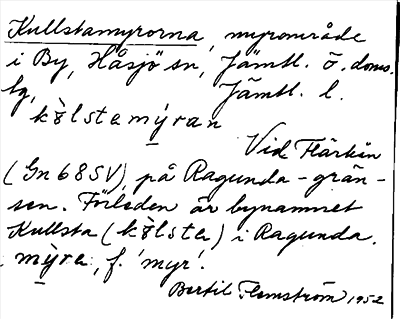 Kullstamyrorna, myrområde
i By, Håsjö sn, Jämtl. ö. doms.
sg, Jämtl. l.
kɵ̀lstamy̱ran
Vid Flärken
(Gn 68 SV), på Ragunda-grän-
sen. Förleden är bynamnet
Kullsta (kɵ̀lsta) i Ragunda.
mỳ̱ra, f. 'myr'.
Bertil Flemström 1952